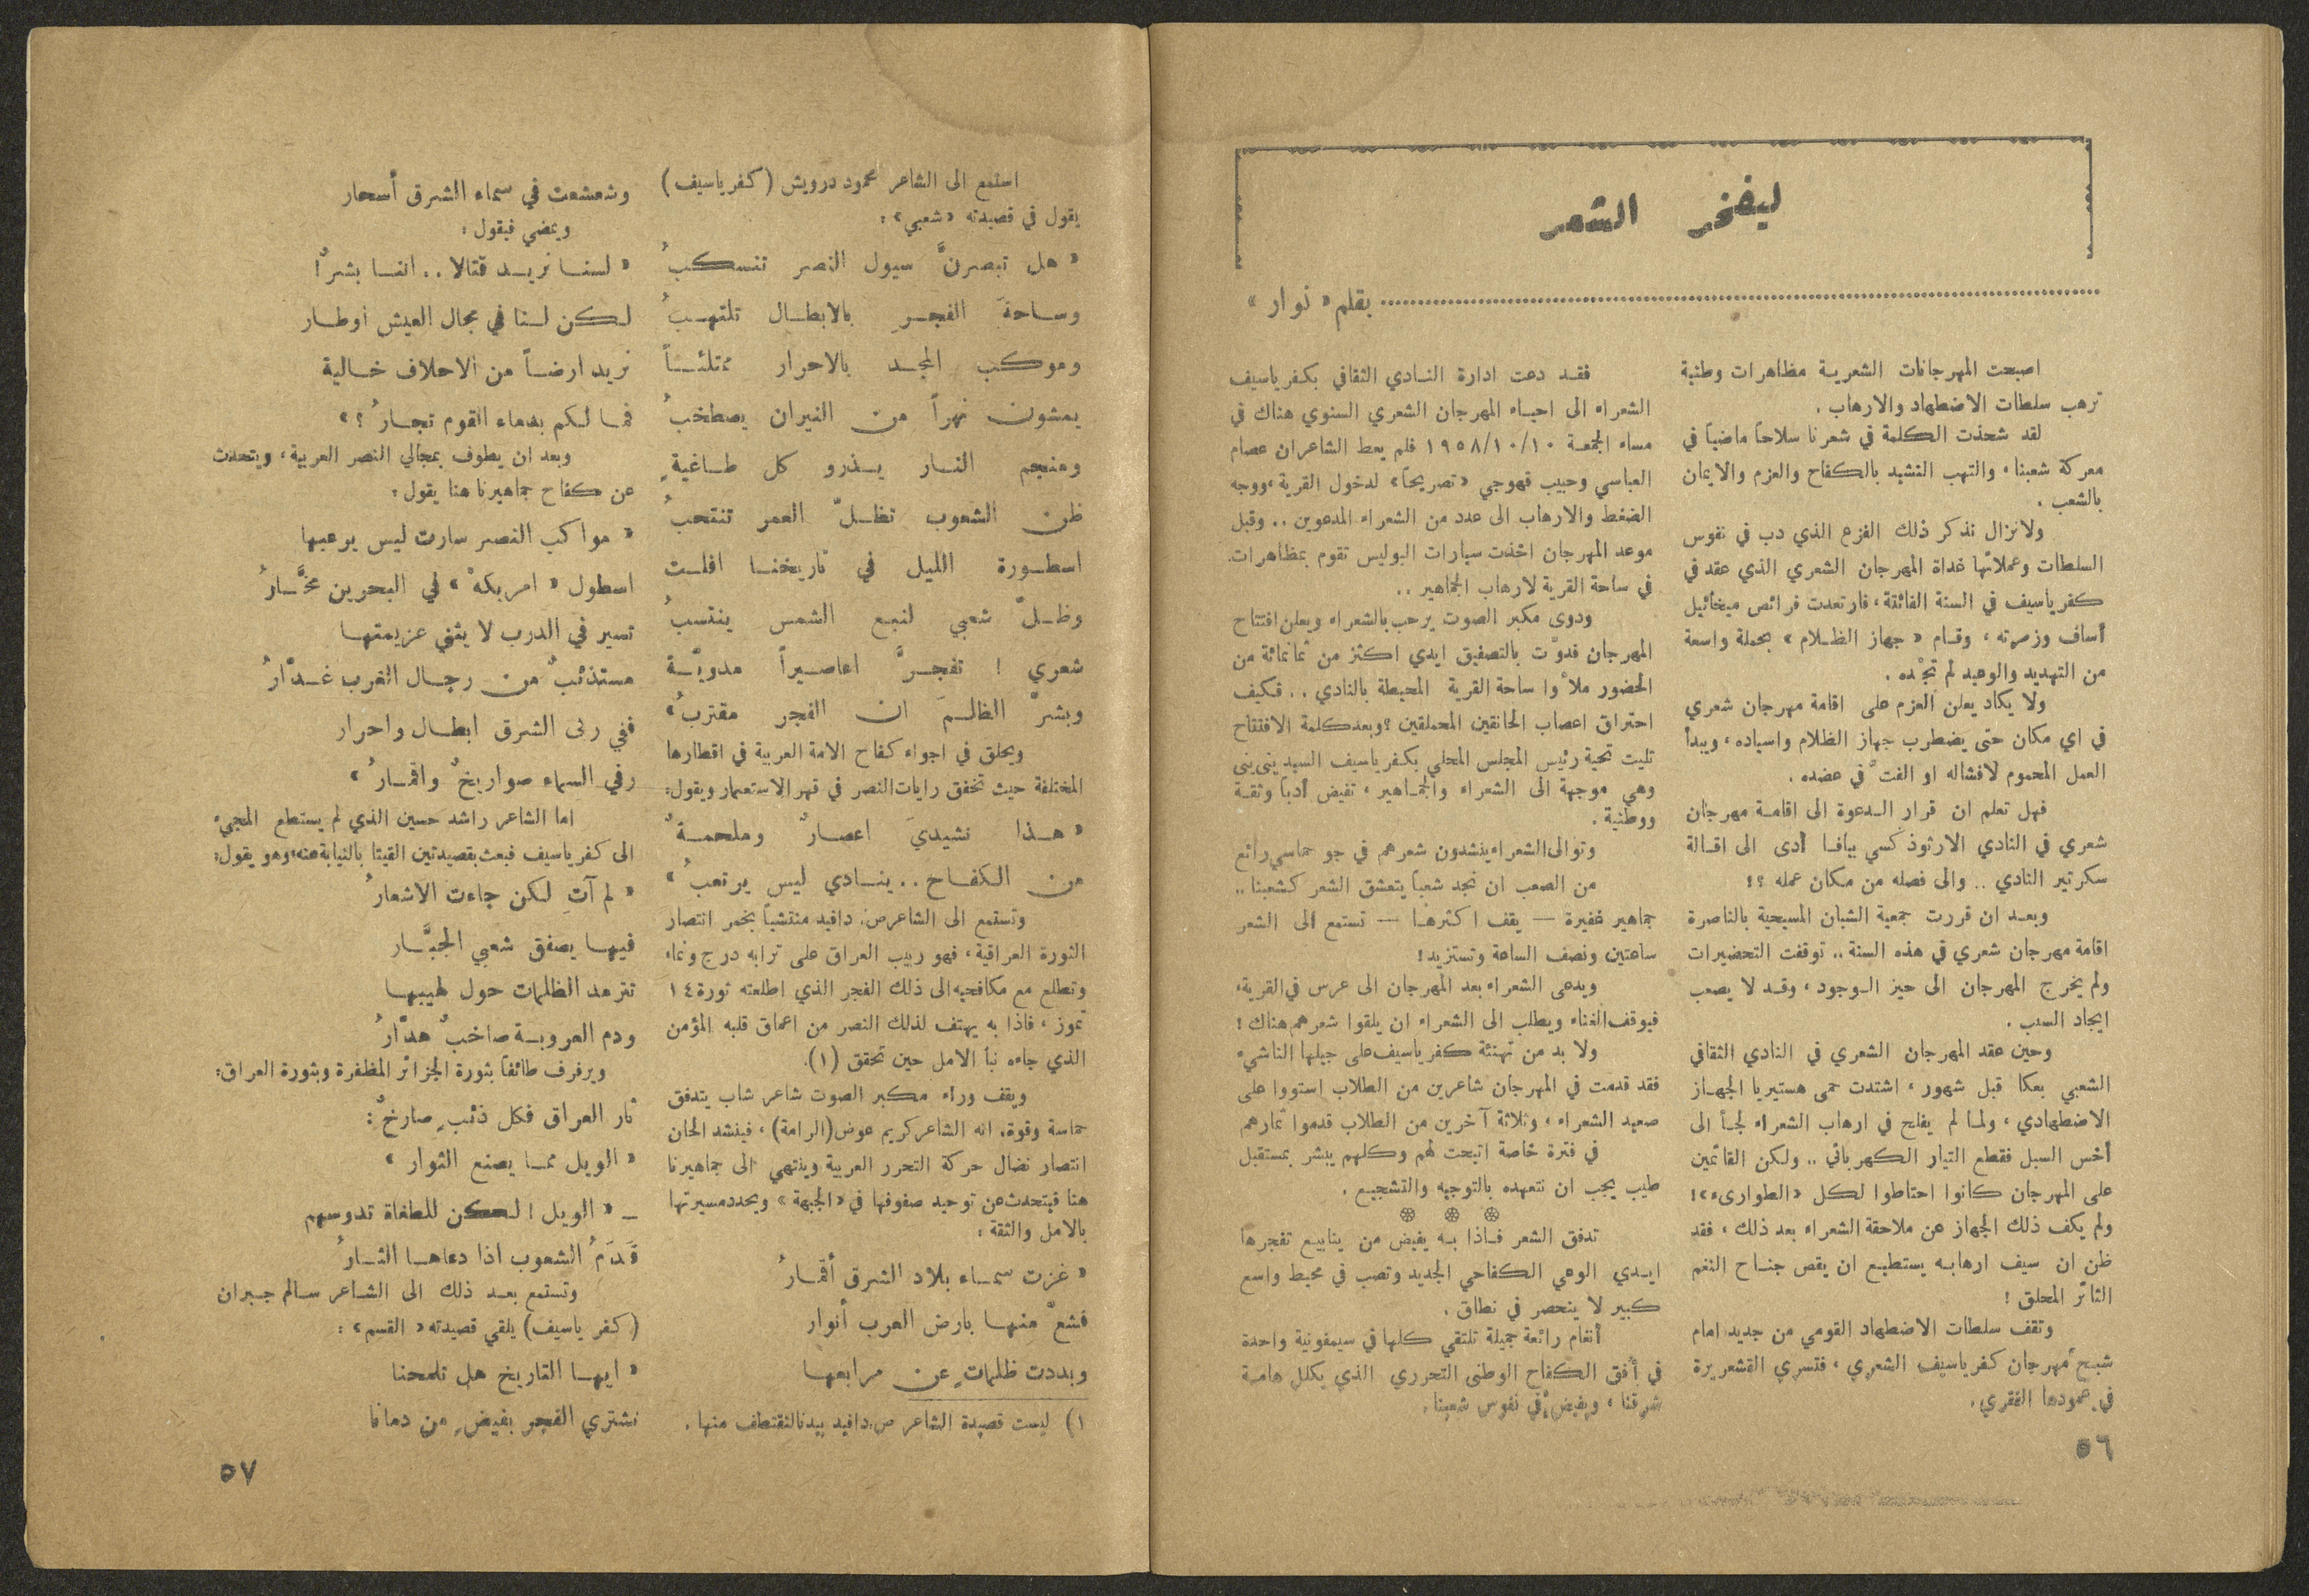 ليفخر الشعر
بقلم «نوار»
اصبحت المهرجانات الشعرية مظاهرات وطنية
ترهب سلطات الاضطهاد والارهاب .
لقد شحذت الكلمة في شعرنا سلاحاً ماضياً في
معركة شعبنا، والتهب النشيد بالكفاح والعزم والايمان
بالشعب .
ولا نزال نذكر ذلك الفزع الذي دب في نفوس
السلطات وعملائها غداة المهرجان الشعري الذي عقد في
كفر ياسيف في السنة الفائتة، فارتعدت فرائص ميخائيل
أساف وزمرته، وقام « جهاز الظلام » بحملة واسعة
من التهديد والوعيد لم تجْده .
ولا يكاد يعلن العزم على اقامة مهرجان شعري
في اي مكان حتى يضطرب جهاز الظلام واسياده، ويبدأ
العمل المحموم لافشاله او الفتّ في عضده .
فهل تعلم ان قرار الدعوة الى اقامة مهرجان
شعري في النادي الارثوذكسي بيافا أدى الى اقالة
سكرتير النادي .. والى فصله من مكان عمله ؟!
وبعد ان قررت جمعية الشبان المسيحية بالناصرة
اقامة مهرجان شعري في هذه السنة .. توقفت التحضيرات
ولم يخرج المهرجان الى حيز الوجود، وقد لا يصعب
ايجاد السبب .
وحين عقد المهرجان الشعري في النادي الثقافي
الشعبي بعكا قبل شهور، اشتدت حمى هستيريا الجهاز
الاضطهادي، ولما لم يفلح في ارهاب الشعراء لجأ الى
أخس السبل فقطع التيار الكهربائي .. ولكن القائمين
على المهرجان كانوا احتاطوا لكل «الطوارىء»!
ولم يكف ذلك الجهاز عن ملاحقة الشعراء بعد ذلك، فقد
ظن ان سيف ارهابه يستطيع ان يقص جناح النغم
الثائر المحلق !
وتقف سلطات الاضطهاد القومي من جديد امام
شبح مهرجان كفر ياسيف الشعري، فتسري القشعريرة
في عمودها الفقري .
فقد دعت ادارة النادي الثقافي بكفر ياسيف
الشعراء الى احياء المهرجان الشعري السنوي هناك في
مساء الجمعة ١٩٥٨/١٠/١٠ فلم يعط الشاعران عصام
العباسي وحبيب قهوجي «تصريحاً» لدخول القرية، ووجه
الضغط والارهاب الى عدد من الشعراء المدعوين .. وقبل
موعد المهرجان اخذت سيارات البوليس تقوم بمظاهرات
في ساحة القرية لارهاب الجماهير ..
ودوى مكبر الصوت يرحب بالشعراء ويعلن افتتاح
المهرجان فدوّت بالتصفيق ايدي اكثر من ثمانمائة من
الحضور ملأوا ساحة القرية المحيطة بالنادي .. فكيف
احتراق اعصاب الحانقين المحملقين ؟ وبعد كلمة الافتتاح
تليت تحية رئيس المجلس المحلي بكفر ياسيف السيد يني يني
وهي موجهة الى الشعراء والجماهير، تفيض أدباً وثقة
ووطنية .
وتوالى الشعراء ينشدون شعرهم في جو حماسي رائع
من الصعب ان نجد شعباً يتعشق الشعر كشعبنا ..
جماهير غفيرة — يقف اكثرها — تستمع الى الشعر
ساعتين ونصف الساعة وتستزيد!
ويدعى الشعراء بعد المهرجان الى عرس في القرية،
فيوقف الغناء ويطلب الى الشعراء ان يلقوا شعرهم هناك !
ولا بد من تهنئة كفر ياسيف على جيلها الناشيء
فقد قدمت في المهرجان شاعرين من الطلاب استووا على
صعيد الشعراء، وثلاثة آخرين من الطلاب قدموا ثمارهم
في فترة خاصة اتيحت لهم وكلهم يبشر بمستقبل
طيب يجب ان نتعهده بالتوجيه والتشجيع .
تدفق الشعر فاذا به يفيض من ينابيع تفجرها
ايدي الوعي الكفاحي الجديد وتصب في محيط واسع
كبير لا ينحصر في نطاق .
أنغام رائعة جميلة تلتقي كلها في سيمفونية واحدة
في أفق الكفاح الوطني التحرري الذي يكلل هامة
شرقنا، ويفيض في نفوس شعبنا .
٥٦
استمع الى الشاعر محمود درويش (كفر ياسيف)
يقول في قصيدته «شعبي» :
« هل تبصرنَّ سيول النصر تنسكبُ
وساحةَ الفجرِ بالابطال تلتهبُ
وموكب المجد بالاحرار ممتلئاً
يمشون نهراً من النيران يصطخبُ
ومنجم النار يذرو كل طاغيةٍ
ظن الشعوب تظلّ العمر تنتحبُ
اسطورة الليل في تاريخنا افلت
وظلّ شعبي لنبع الشمس ينتسبُ
شعري ! تفجرَّ اعاصيراً مدويّة
وبشرّ الظالمَ ان الفجر مقتربُ»
ويحلق في اجواء كفاح الامة العربية في اقطارها
المختلفة حيث تخفق رايات النصر في قهر الاستعمار ويقول:
« هذا نشيديَ اعصارٌ وملحمةٌ
من الكفاح .. ينادي ليس يرتعبُ»
وتستمع الى الشاعر ص. دافيد منتشياً بخمر انتصار
الثورة العراقية، فهو ربيب العراق على ترابه درج ونما،
وتطلع مع مكافحيه الى ذلك الفجر الذي اطلعته ثورة ١٤
تموز، فاذا به يهتف لذلك النصر من اعماق قلبه المؤمن
الذي جاءه نبأ الامل حين تحقق (١).
ويقف وراء مكبر الصوت شاعر شاب يتدفق
حماسة وقوة. انه الشاعر كريم عوض (الرامة)، فينشد الحان
انتصار نضال حركة التحرر العربية وينتهي الى جماهيرنا
هنا فيتحدث عن توحيد صفوفها في «الجبهة» ويحدد مسيرتها
بالامل والثقة :
« غزت سماء بلاد الشرق أقمارُ
فشعّ منها بارض العرب أنوار
وبددت ظلماتٍ عن مرابعها
١) ليست قصيدة الشاعر ص. دافيد بيدنا لنقتطف منها .
وشعشعت في سماء الشرق أسحار
ويمضي فيقول :
« لسنا نريد قتالا .. اننا بشرٌ!
لكن لنا في مجال العيش أوطار
نريد ارضاً من الاحلاف خالية
فما لكم بدماء القوم تجارُ ؟ »
وبعد ان يطوف بمجالي النصر العربية، ويتحدث
عن كفاح جماهيرنا هنا يقول :
« مواكب النصر سارت ليس يرعبها
اسطول « امريكةْ » في البحرين مخَّارُ
تسير في الدرب لا يثني عزيمتها
مستذئبٌ من رجال الغرب غدّارُ
ففي ربى الشرق ابطال واحرار
وفي السماء صواريخٌ واقمارُ »
اما الشاعر راشد حسين الذي لم يستطع المجيء
الى كفر ياسيف فبعث بقصيدتين القيتا بالنيابة عنه، وهو يقول:
« لم آتِ لكن جاءت الاشعارُ
فيها يصفق شعبي الجبَّار
تترعد الظلمات حول لهيبها
ودم العروبة صاخبٌ هدّارُ
ويرفرف طائفاً بثورة الجزائر المظفرة وبثورة العراق:
ثار العراق فكل ذئبٍ صارخٌ :
« الويل مما يصنع الثوار »
ـ « الويل ! لـكن للطغاة تدوسهم
قَدَمُ الشعوب اذا دعاها الثارُ
وتستمع بعد ذلك الى الشاعر سالم جبران
(كفر ياسيف) يلقي قصيدته « القسم » :
« ايها التاريخ هل تلمحنا
نشتري الفجر بفيضٍ من دمانا
٥٧